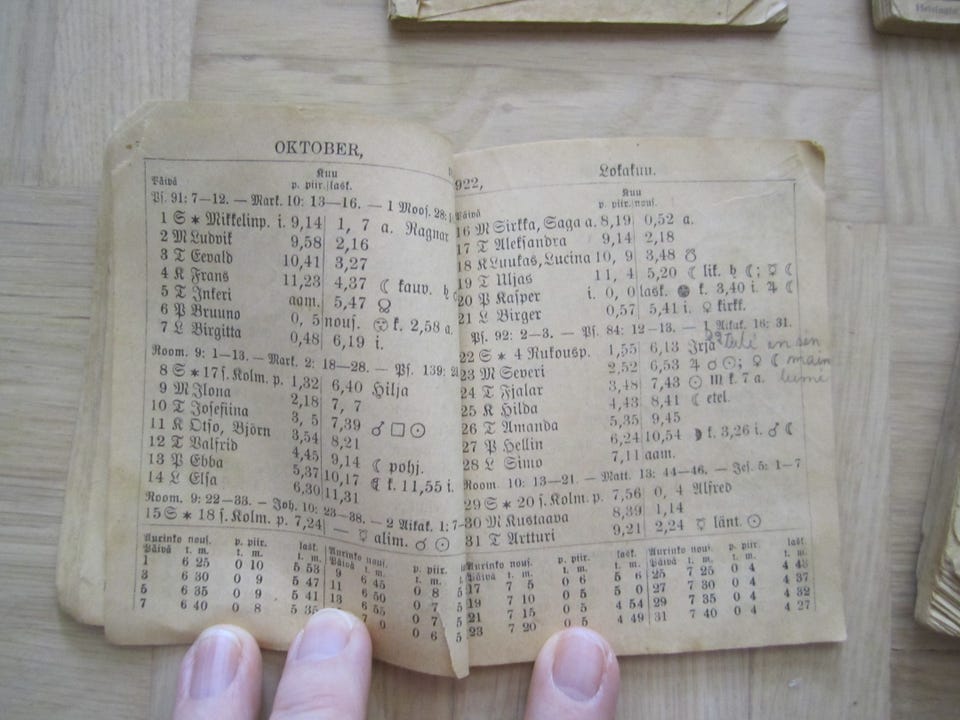 OKTOBER,
Kuu
Päivä p. piir. lask.
Ps. 91: 7—12. — Mark. 10: 13—16. — 1 Moos. 28:
1 S * Mikkelinp. i. 9,14 1, 7 a. Ragnar
2 M Ludvik 9,58 2,16
3 T Eevald 10,41 3,27
4 K Frans 11,23 4,37 ☾ kauv. ♄
5 T Inkeri aam. 5,47
6 P Bruuno 0, 5 nous. k. 2,58 a.
7 L Birgitta 0,48 6,19 i.
Room. 9: 1—13. — Mark. 2: 18—28. — Ps. 139:
8 S * 17 s. Kolm. p. 1,32 6,40 Hilja
9 M Ilona 2,18 7, 7
10 T Josefiina 3, 5 7,39 ♂ □ ☉
11 K Otso, Björn 3,54 8,21
12 T Valfrid 4,45 9,14 ☾ pohj.
13 P Ebba 5,37 10,17 ☾ k. 11,55 i.
14 L Elsa 6,30 11,31
Room. 9: 22—33. — Joh. 10: 23—38. — 2 Aikak. 1: 7-
15 S * 18 s. Kolm. p. 7,24 — ☿ alim. ☌ ☉
Aurinko nous. p. piir. lask.
Päivä t. m. t. m. t. m.
1 6 25 0 10 5 53
3 6 30 0 9 5 47
5 6 35 0 9 5 41
7 6 40 0 8 5 35
Aurinko nous. p. piir.
Päivä t. m. t. m.
9 6 45 0 8 5
11 6 50 0 7 5
13 6 55 0 7 5
0 0 6 5
922, Lokakuu.
Kuu
Päivä p. piir. nous.
16 M Sirkka, Saga a. 8,19 0,52 a.
17 T Aleksandra 9,14 2,18
18 K Luukas, Lucina 10, 9 3,48 ☋
19 T Uljas 11, 4 5,20 ☾ lik. ♄ ☾; ☿ ☾
20 P Kasper i. 0, 0 lask. k. 3,40 i. ♃ ☾
21 L Birger 0,57 5,41 i. ♀ kirkk.
Ps. 92: 2—3. — Ps. 84: 12—13. — 1 Aikak. 16: 31.
22 S * 4 Rukousp. 1,55 6,13 Irja tuli en sin
23 M Severi 2,52 6,53 ♃ ☌ ☉; ♀ ☾ main
24 T Fjalar 3,48 7,43 ☉ ♏ k. 7 a. lumi
25 K Hilda 4,43 8,41 ☾ etel.
26 T Amanda 5,35 9,45
27 P Hellin 6,24 10,54 k. 3,26 i. ♂ ☾
28 L Simo 7,11 aam.
Room. 10: 13—21. — Matt. 13: 44—46. — Jes. 5: 1—7
29 S * 20 s. Kolm. p. 7,56 0, 4 Alfred
30 M Kustaava 8,39 1,14
31 T Artturi 9,21 2,24 ☿ länt. ☉
nous. p. piir. lask.
Päivä t. m. t. m. t. m.
17 7 5 0 6 5 6
19 7 10 0 5 5 0
21 7 15 0 5 4 54
23 7 20 0 5 4 49
Aurinko nous. p. piir. lask.
Päivä t. m. t. m. t. m.
25 7 25 0 4 4 43
27 7 30 0 4 4 37
29 7 35 0 4 4 32
31 7 40 0 4 4 27